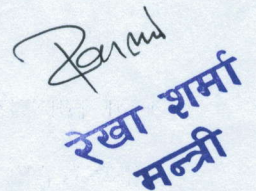 रेखा शर्मा
मन्त्री